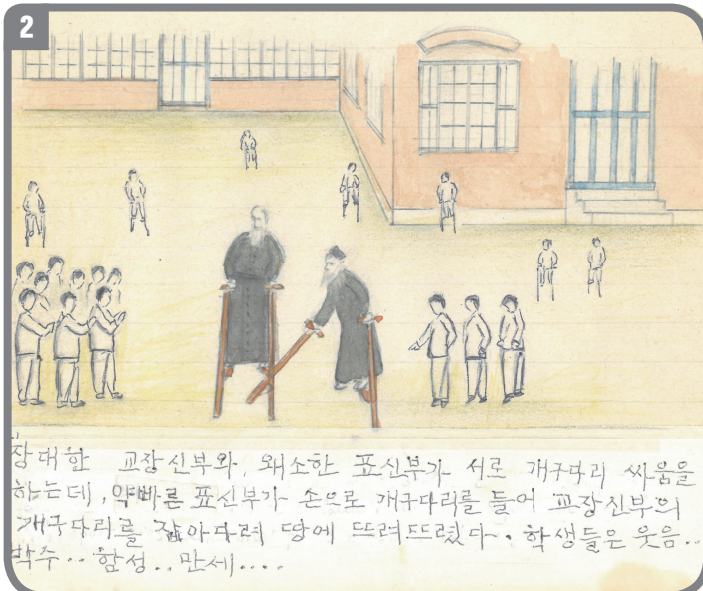 2
장대한 교장신부와, 왜소한 표신부가 서로 개구다리 싸움을
하는데, 약빠른 표신부가 손으로 개구다리를 들어 교장신부의
개구다리를 잡아다려 땅에 뜨려뜨렸다. 학생들은 웃음..
박수.. 함성.. 만세....